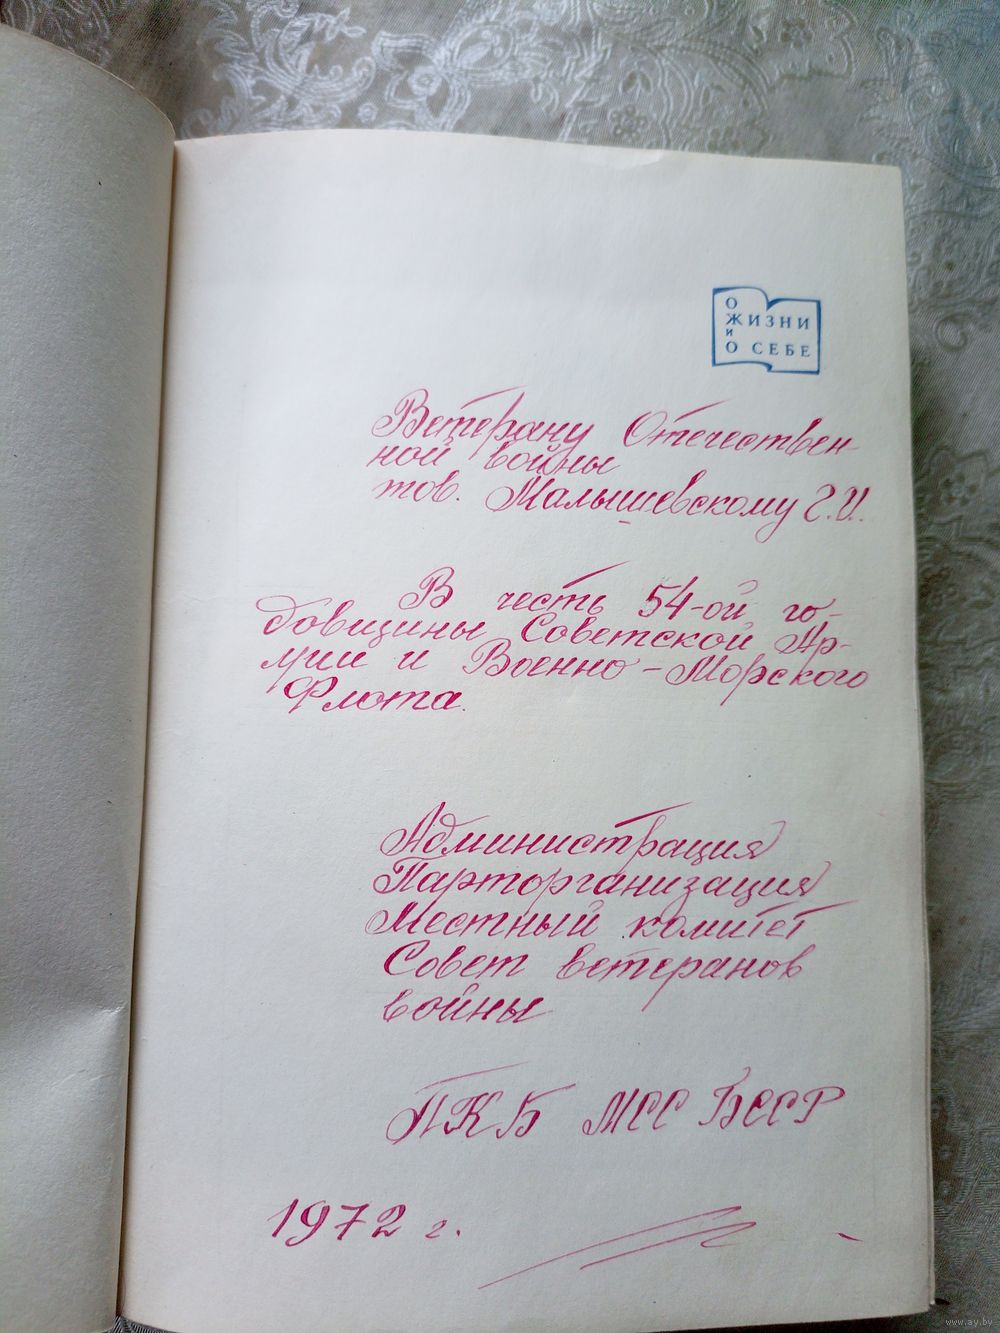 О
ЖИЗНИ
и
О СЕБЕ
Ветерану Отечествен-
ной войны
тов. Малышевскому Г.И.
В честь 54-ой го-
довщины Советской Ар-
мии и Военно-Морского
Флота.
Администрация
Парторганизация
Местный комитет
Совет ветеранов
войны
ПКБ МСС БССР
1972 г.
www.ay.by